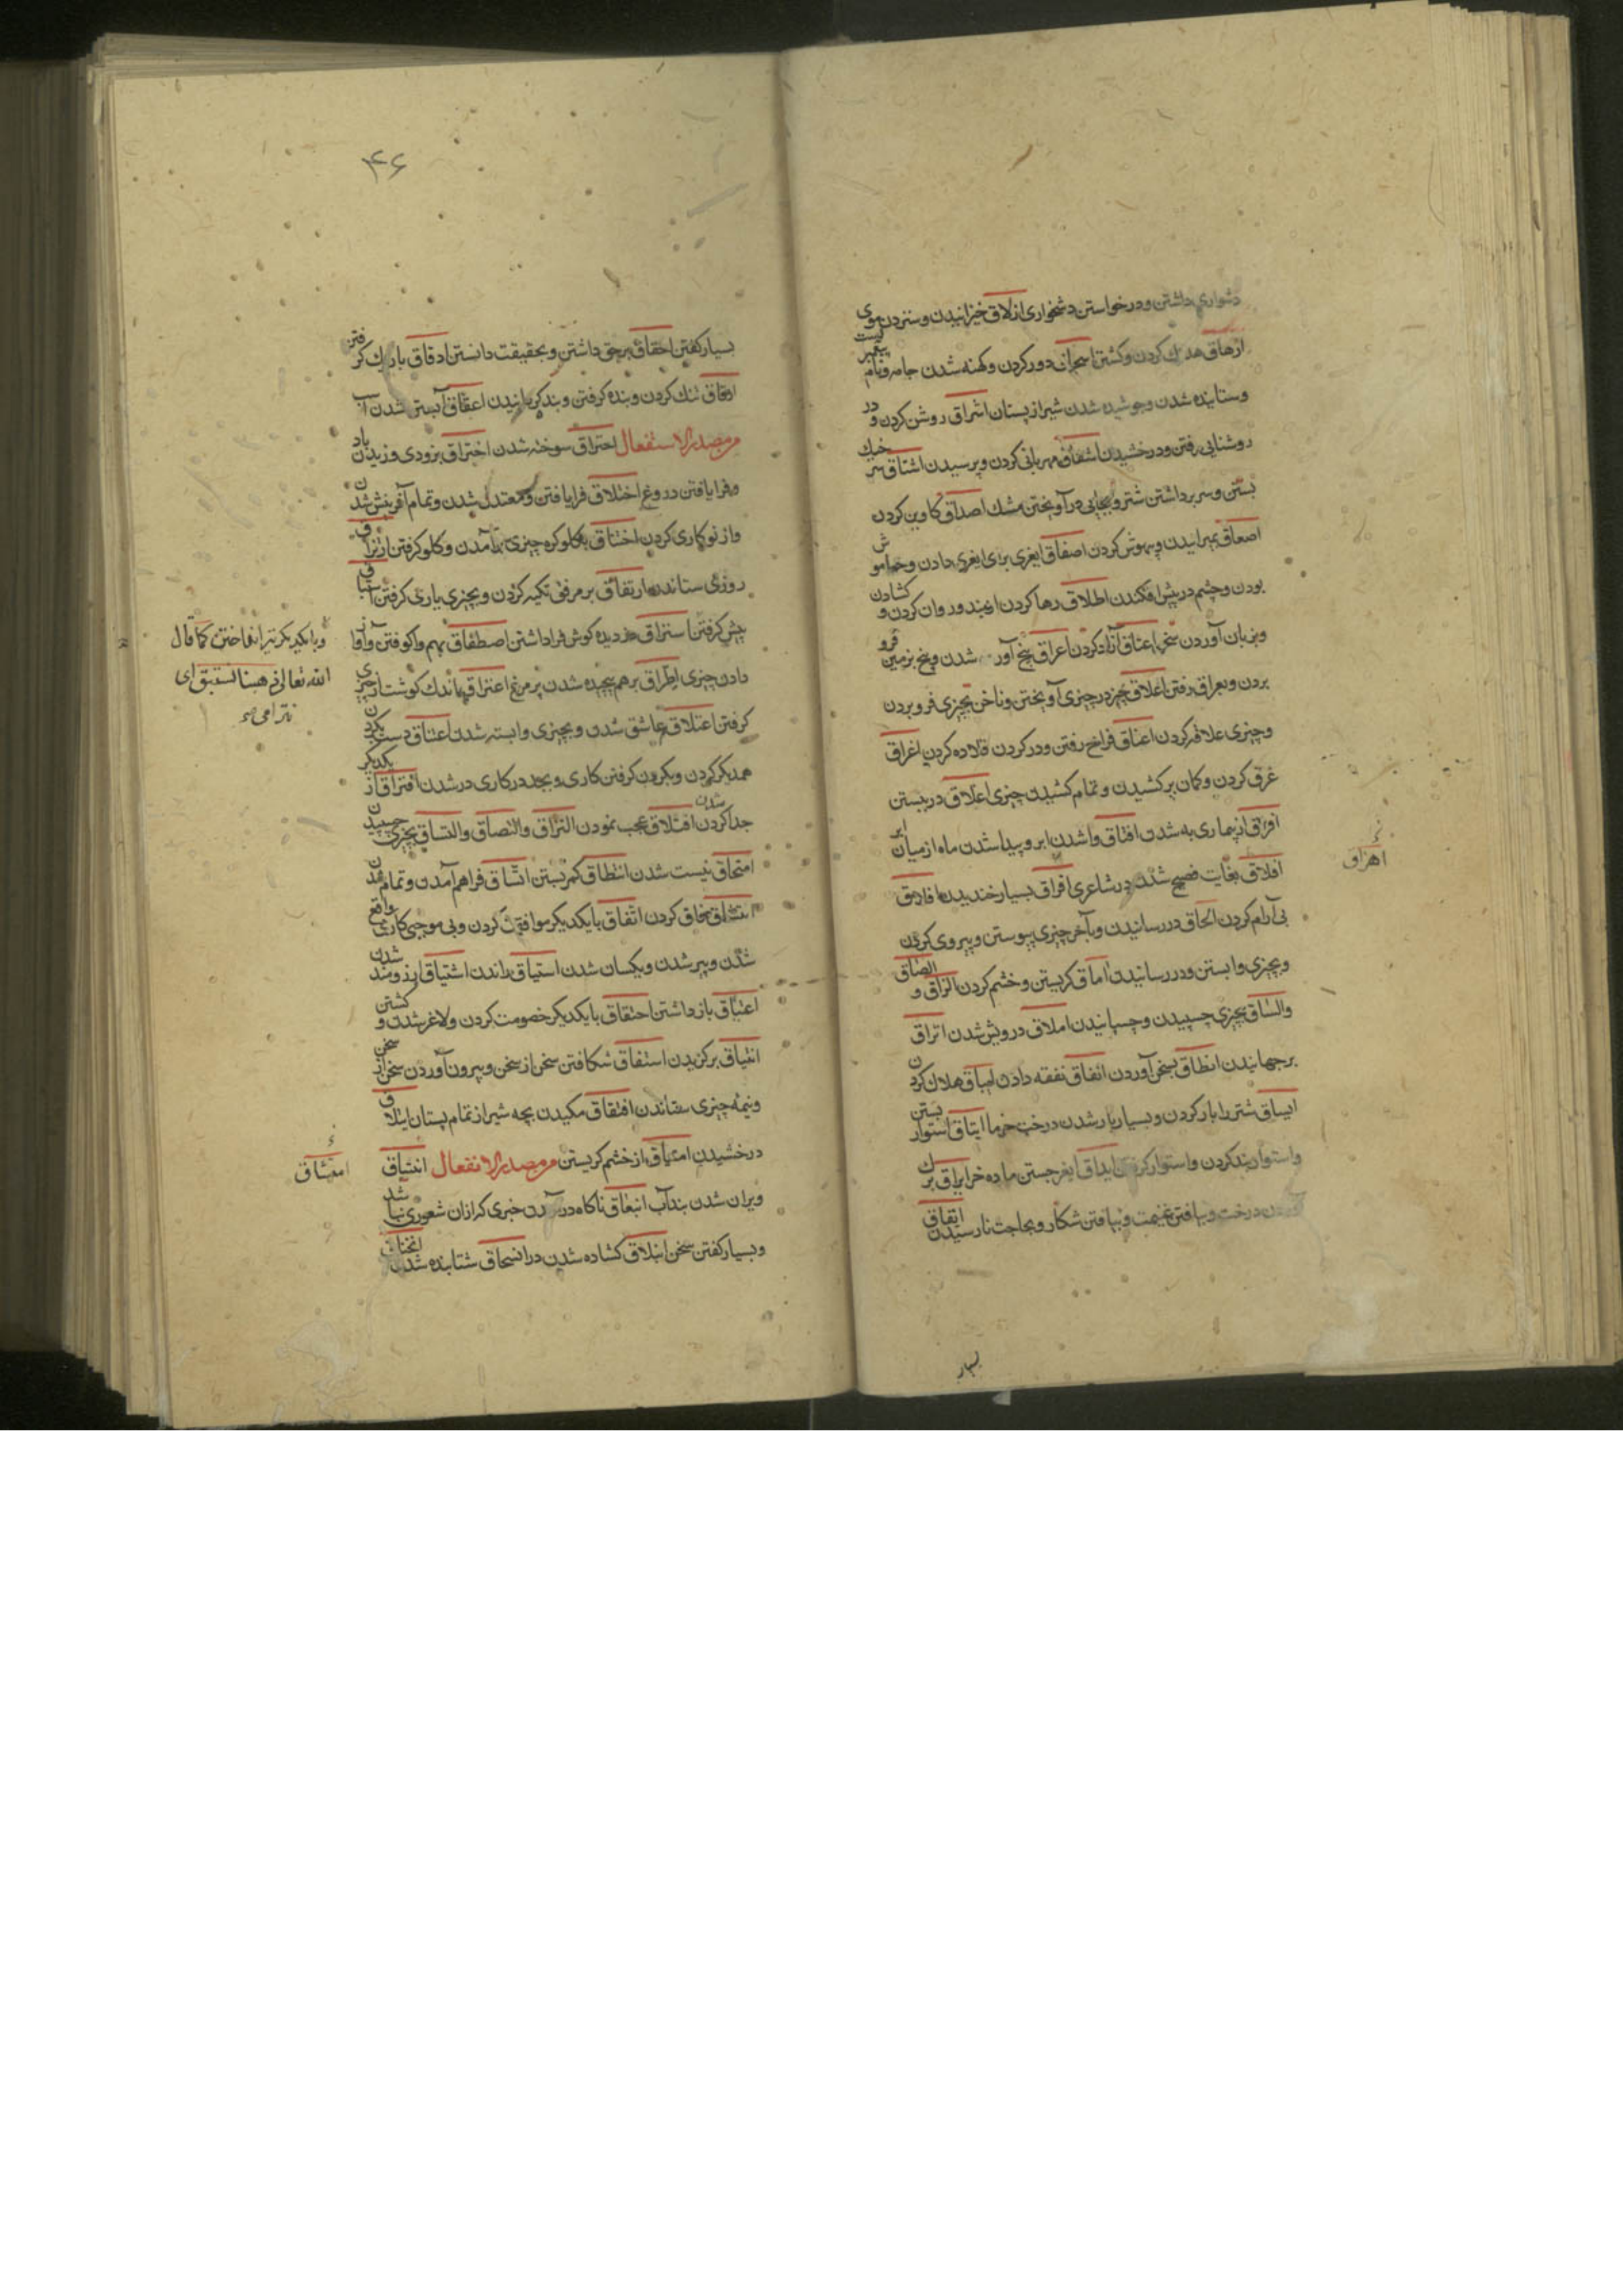 دشواری داشتن و درخواستن دشخواری ازلاق خیزانیدن و ستردن موی
ازهاق هلاک کردن و کشتن اسحاق دور کردن و کهنه شدن جامه و نام پیغمبریست
و ستاینده شدن و جوشیده شدن شیر از پستان اشراق روشن کردن و در
روشنایی رفتن و درخشیدن اشفاق مهربانی کردن و پرسیدن اشناق سر خیک
بستن و سر برداشتن شتر و بجایی در آویختن مشک اصداق کاوین کردن
اصعاق بمیرانیدن و بیهوش کردن اصفاق برای دادن و خاموش
بودن و چشم در پیش افکندن اطلاق رها کردن از بند و روان کردن و کشادن
و بزبان آوردن سخن اعتاق آزاد کردن اعراق بیخ آور شدن و بیخ بزمین فرو
بردن و بعراق رفتن اعلاق چیز در چیزی آویختن و ناخن بچیزی فرو بردن
و چیزی علاقه کردن اعناق فراخ رفتن و در کردن قلاده کردن اغراق
غرق کردن و کمان پر کشیدن و تمام کشیدن چیزی اغلاق در بستن
افراق از بیماری به شدن افتاق واشدن ابر و پیدا شدن ماه از میان ابر
افلاق بغایت فصیح شدن در شاعری بسیار خندیدن
بی آرام کردن الحاق در رسانیدن و بآخر چیزی پیوستن و پیروی کردن
و بچیزی وابستن و در رسانیدن اماق کریستن و خشم کردن الزاق و الصاق
والساق بچیزی چسپیدن و چسپانیدن املاق درویش شدن انزاق
برجهانیدن انطاق بسخن آوردن انفاق نفقه دادن ایباق هلاک کردن
ایساق شتر را بار کردن و بسیار بار شدن درخت خرما ایثاق استوار بستن
و استوار بند کردن و استوار کرفتن ایداق جستن ماده خر ایراق برک
آوردن درخت و نیافتن غنیمت و نیافتن شکار و بحاجت نارسیدن ایفاق
اهزاق
بسیار
۴۶
بسیار کفتن احقاق برحق داشتن و بحقیقت دانستن ادقاق باریک کرفتن
تنک کردن و بنده کرفتن و بندکی اعقاق آبستن شدن اسب
من مصدر الاستفعال احتراق سوخته شدن اختراق بزودی وزیدن باد
و فرا یافتن دروغ اختلاق فرا یافتن و معتدل شدن و تمام آفرینش شدن
و از نو کاری کردن اختناق کلو کره چیزی برآمدن و کلو کرفتن ارتزاق
روزی ستاندن ارتفاق بر مرفق تکیه کردن و بچیزی یاری کرفتن استباق
پیش کرفتن استراق دزدیده کوش فرا داشتن اصطفاق بهم واکوفتن و آواز
دادن چیزی اطراق برهم پیچیده شدن پر مرغ اعتراق کوشت از چیزی
کرفتن اعتلاق عاشق شدن و بچیزی وابسته شدن اعتناق دست بکردن
همدیکر کردن و بکردن کرفتن کاری و بجد در کاری در شدن افتراق از یکدیکر
جدا کردن شدن افتلاق عجب نمودن التزاق والتصاق والتساق بچیزی چسپیدن
امتحاق نیست شدن انتطاق کمر بستن اتساق فراهم آمدن و تمام شدن
کردن اتفاق با یکدیکر موافقت کردن و بی موجبی کاری واقع
شدن و پیر شدن و یکسان شدن استیاق راندن اشتیاق آرزومند شدن
اعتیاق باز داشتن احتقاق با یکدیکر خصومت کردن و لاغر شدن و کشتن
انتیاق برکزیدن اشتقاق شکافتن سخن از سخن و بیرون آوردن سخن از سخن
و نیمه چیزی ستاندن امتقاق مکیدن بچه شیر از تمام پستان ایتلاق
درخشیدن امتیاق از خشم کریستن من مصدر الانفعال انبثاق
ویران شدن بند آب انبعاق ناکاه در آمدن خبری که از آن شعوری نباشد
و بسیار کفتن سخن انبلاق کشاده شدن در انسحاق شتابنده شدن
و با یکدیکر تیر انداختن کما قال
الله تعالی ذهبنا نستبق ای
نترامی
امتشاق